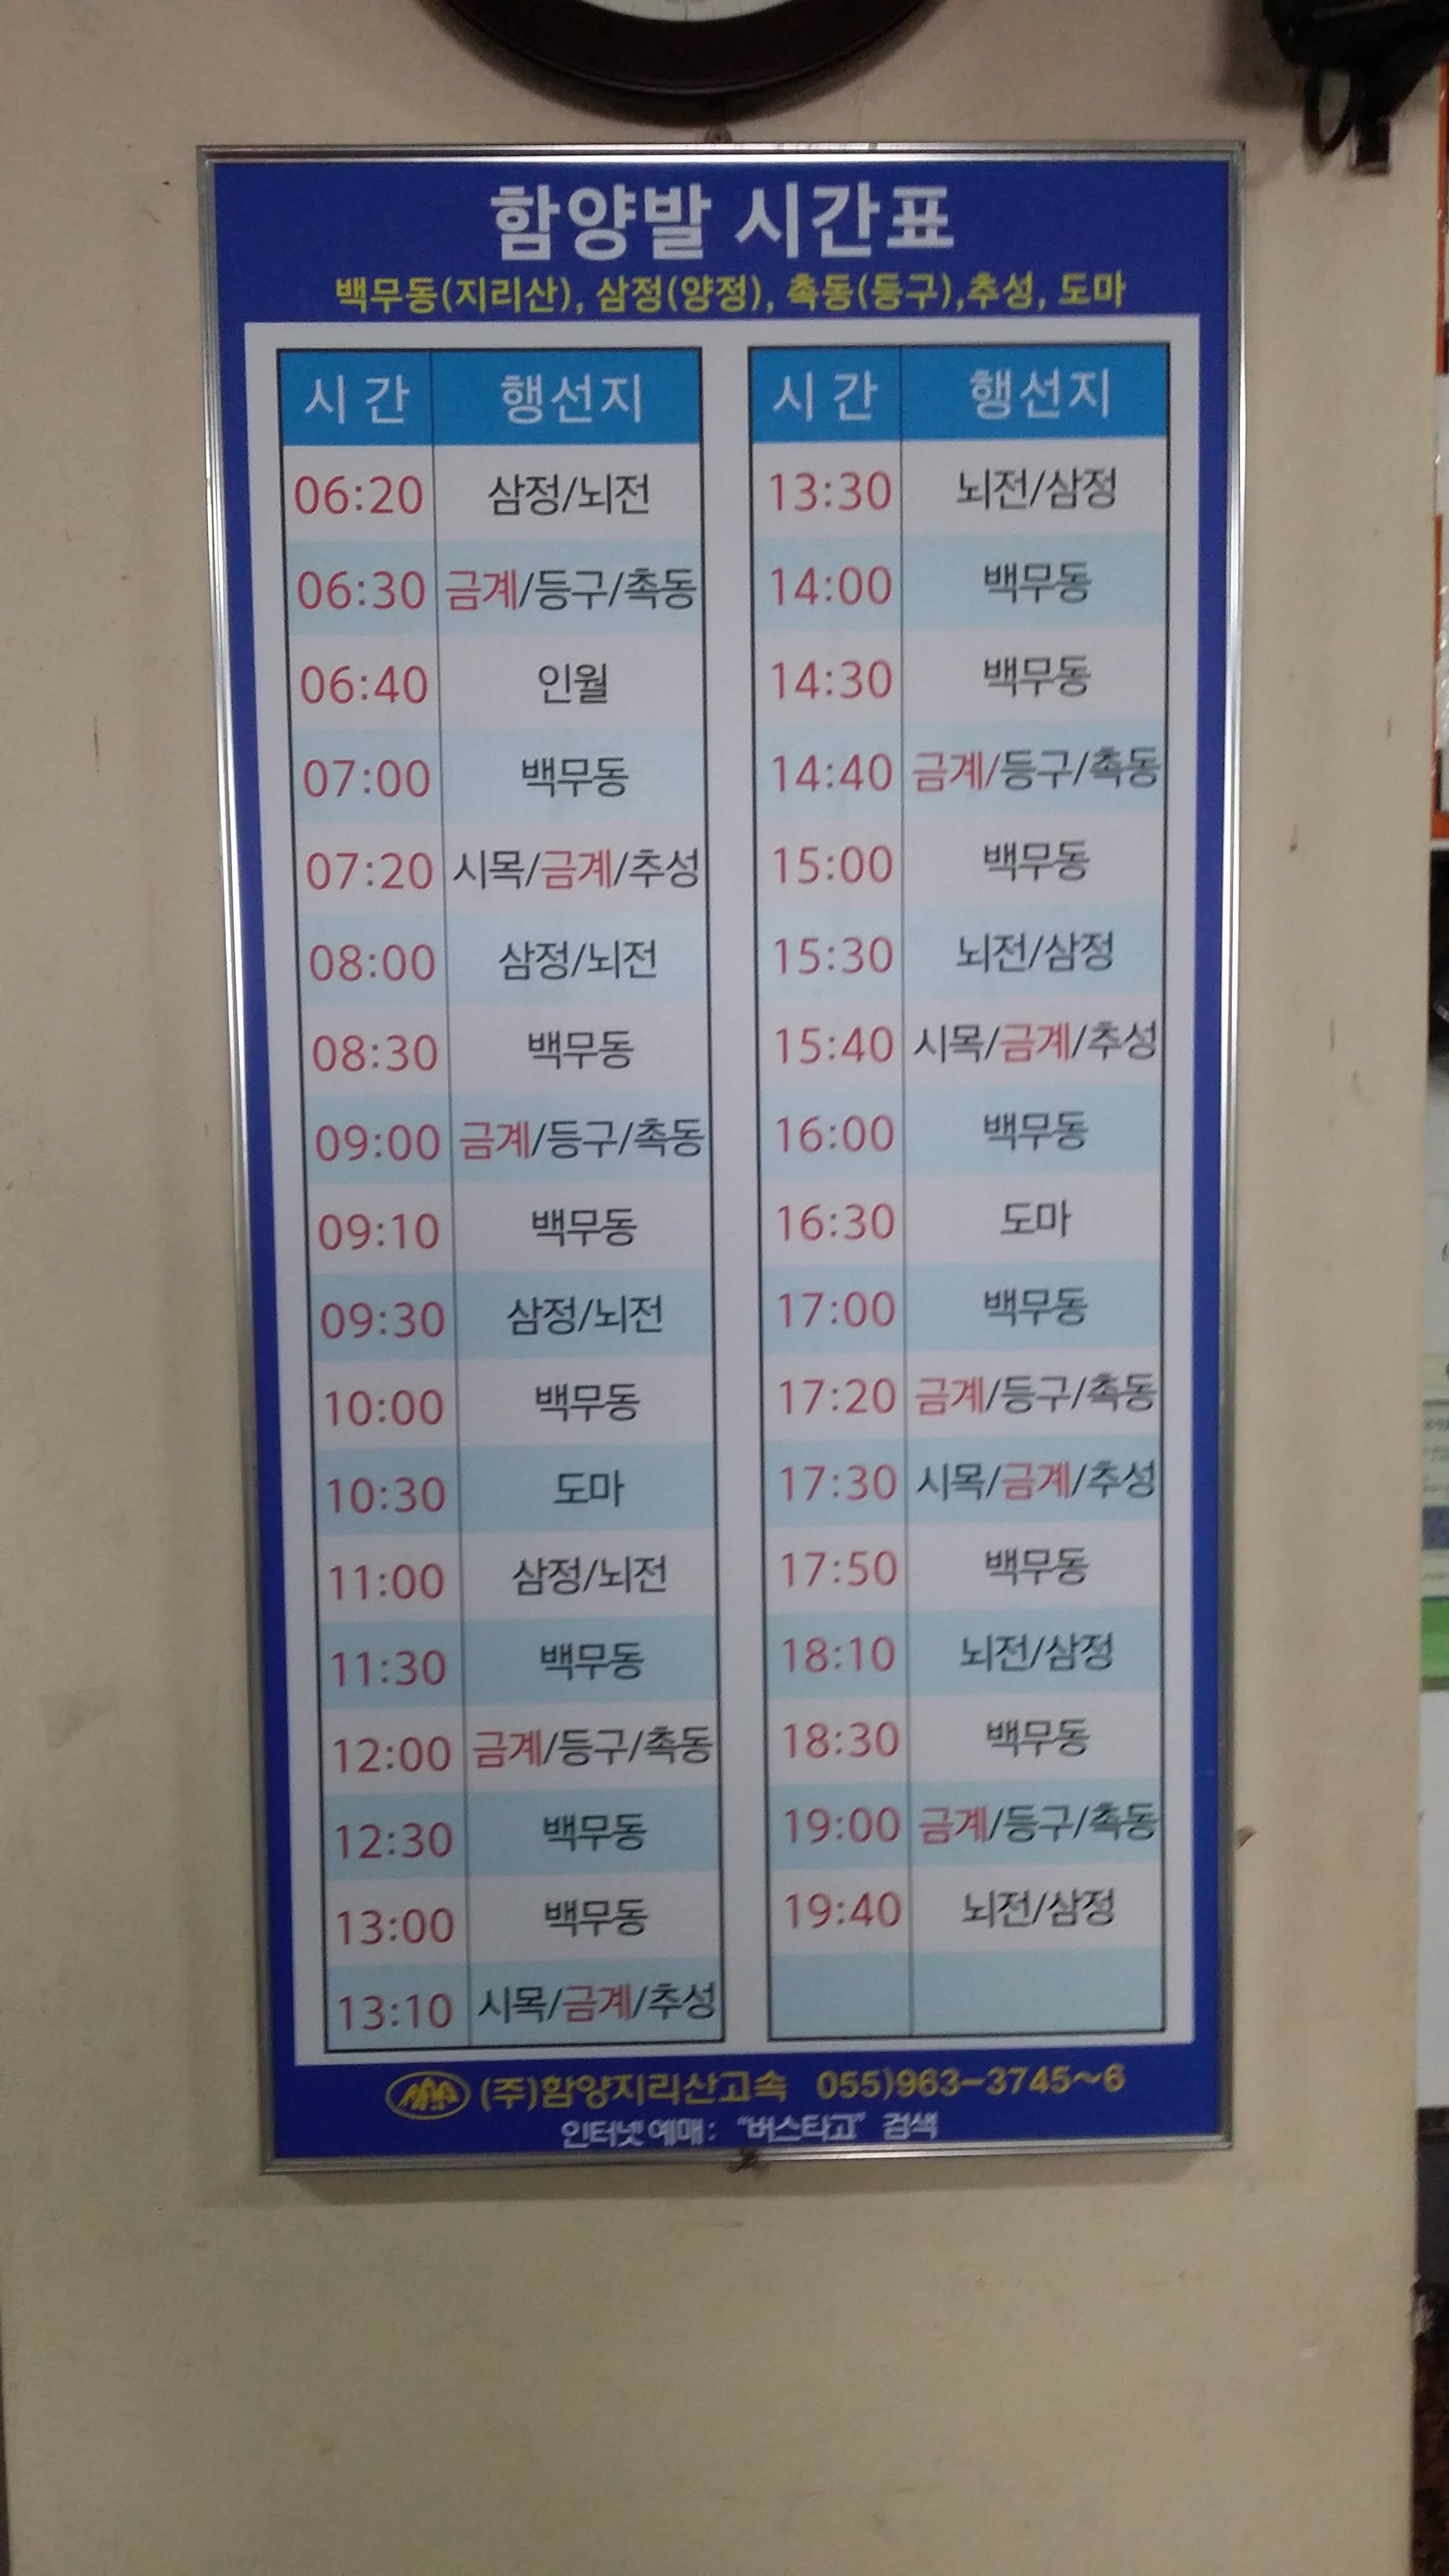 함양발 시간표
백무동(지리산), 삼정(양정), 촉동(등구),추성, 도마
시 간 행선지
06:20 삼정/뇌전
06:30 금계/등구/촉동
06:40 인월
07:00 백무동
07:20 시목/금계/추성
08:00 삼정/뇌전
08:30 백무동
09:00 금계/등구/촉동
09:10 백무동
09:30 삼정/뇌전
10:00 백무동
10:30 도마
11:00 삼정/뇌전
11:30 백무동
12:00 금계/등구/촉동
12:30 백무동
13:00 백무동
13:10 시목/금계/추성
시 간 행선지
13:30 뇌전/삼정
14:00 백무동
14:30 백무동
14:40 금계/등구/촉동
15:00 백무동
15:30 뇌전/삼정
15:40 시목/금계/추성
16:00 백무동
16:30 도마
17:00 백무동
17:20 금계/등구/촉동
17:30 시목/금계/추성
17:50 백무동
18:10 뇌전/삼정
18:30 백무동
19:00 금계/등구/촉동
19:40 뇌전/삼정
(주)함양지리산고속 055)963-3745~6
인터넷예매: "버스타고" 검색